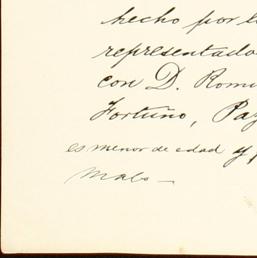 hecho por
representado
con D. Romu
Fortuño, Paz
es menor de edad y
malo—